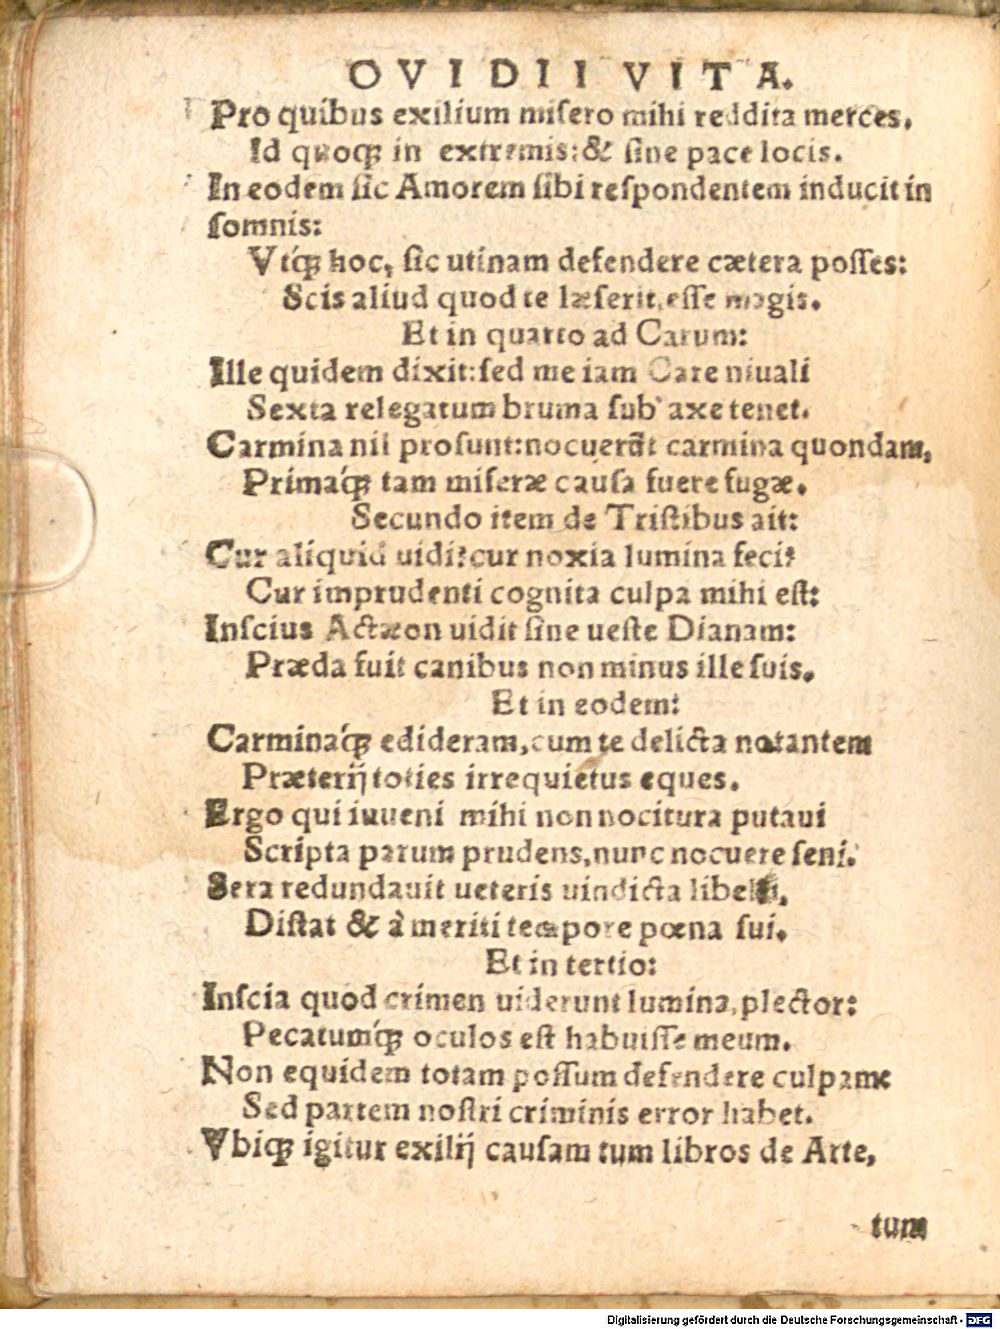 OVIDII VITA.
Pro quibus exilium misero mihi reddita merces,
Id quoq; in extremis: & sine pace locis.
In eodem sic Amorem sibi respondentem inducit in
somnis:
Vtq́; hoc, sic utinam defendere cætera posses:
Scis aliud quod te læserit, esse magis.
Et in quarto ad Carum:
Ille quidem dixit: sed me iam Care niuali
Sexta relegatum bruma sub axe tenet.
Carmina nil prosunt: nocuerūt carmina quondam,
Primaq́; tam miseræ causa fuere fugæ.
Secundo item de Tristibus ait:
Cur aliquid uidi? cur noxia lumina feci?
Cur imprudenti cognita culpa mihi est:
Inscius Actæon uidit sine ueste Dianam:
Præda fuit canibus non minus ille suis.
Et in eodem:
Carminaq́; edideram, cum te delicta notantem
Præterij toties irrequietus eques.
Ergo qui iuueni mihi non nocitura putaui
Scripta parum prudens, nunc nocuere seni.
Sera redundauit ueteris uindicta libelli,
Distat & à meriti tempore pœna sui.
Et in tertio:
Inscia quod crimen uiderunt lumina, plector:
Pecatumq́; oculos est habuisse meum.
Non equidem totam possum defendere culpam:
Sed partem nostri criminis error habet.
Vbiq; igitur exilij causam tum libros de Arte,
tum
Digitalisierung gefördert durch die Deutsche Forschungsgemeinschaft - DFG